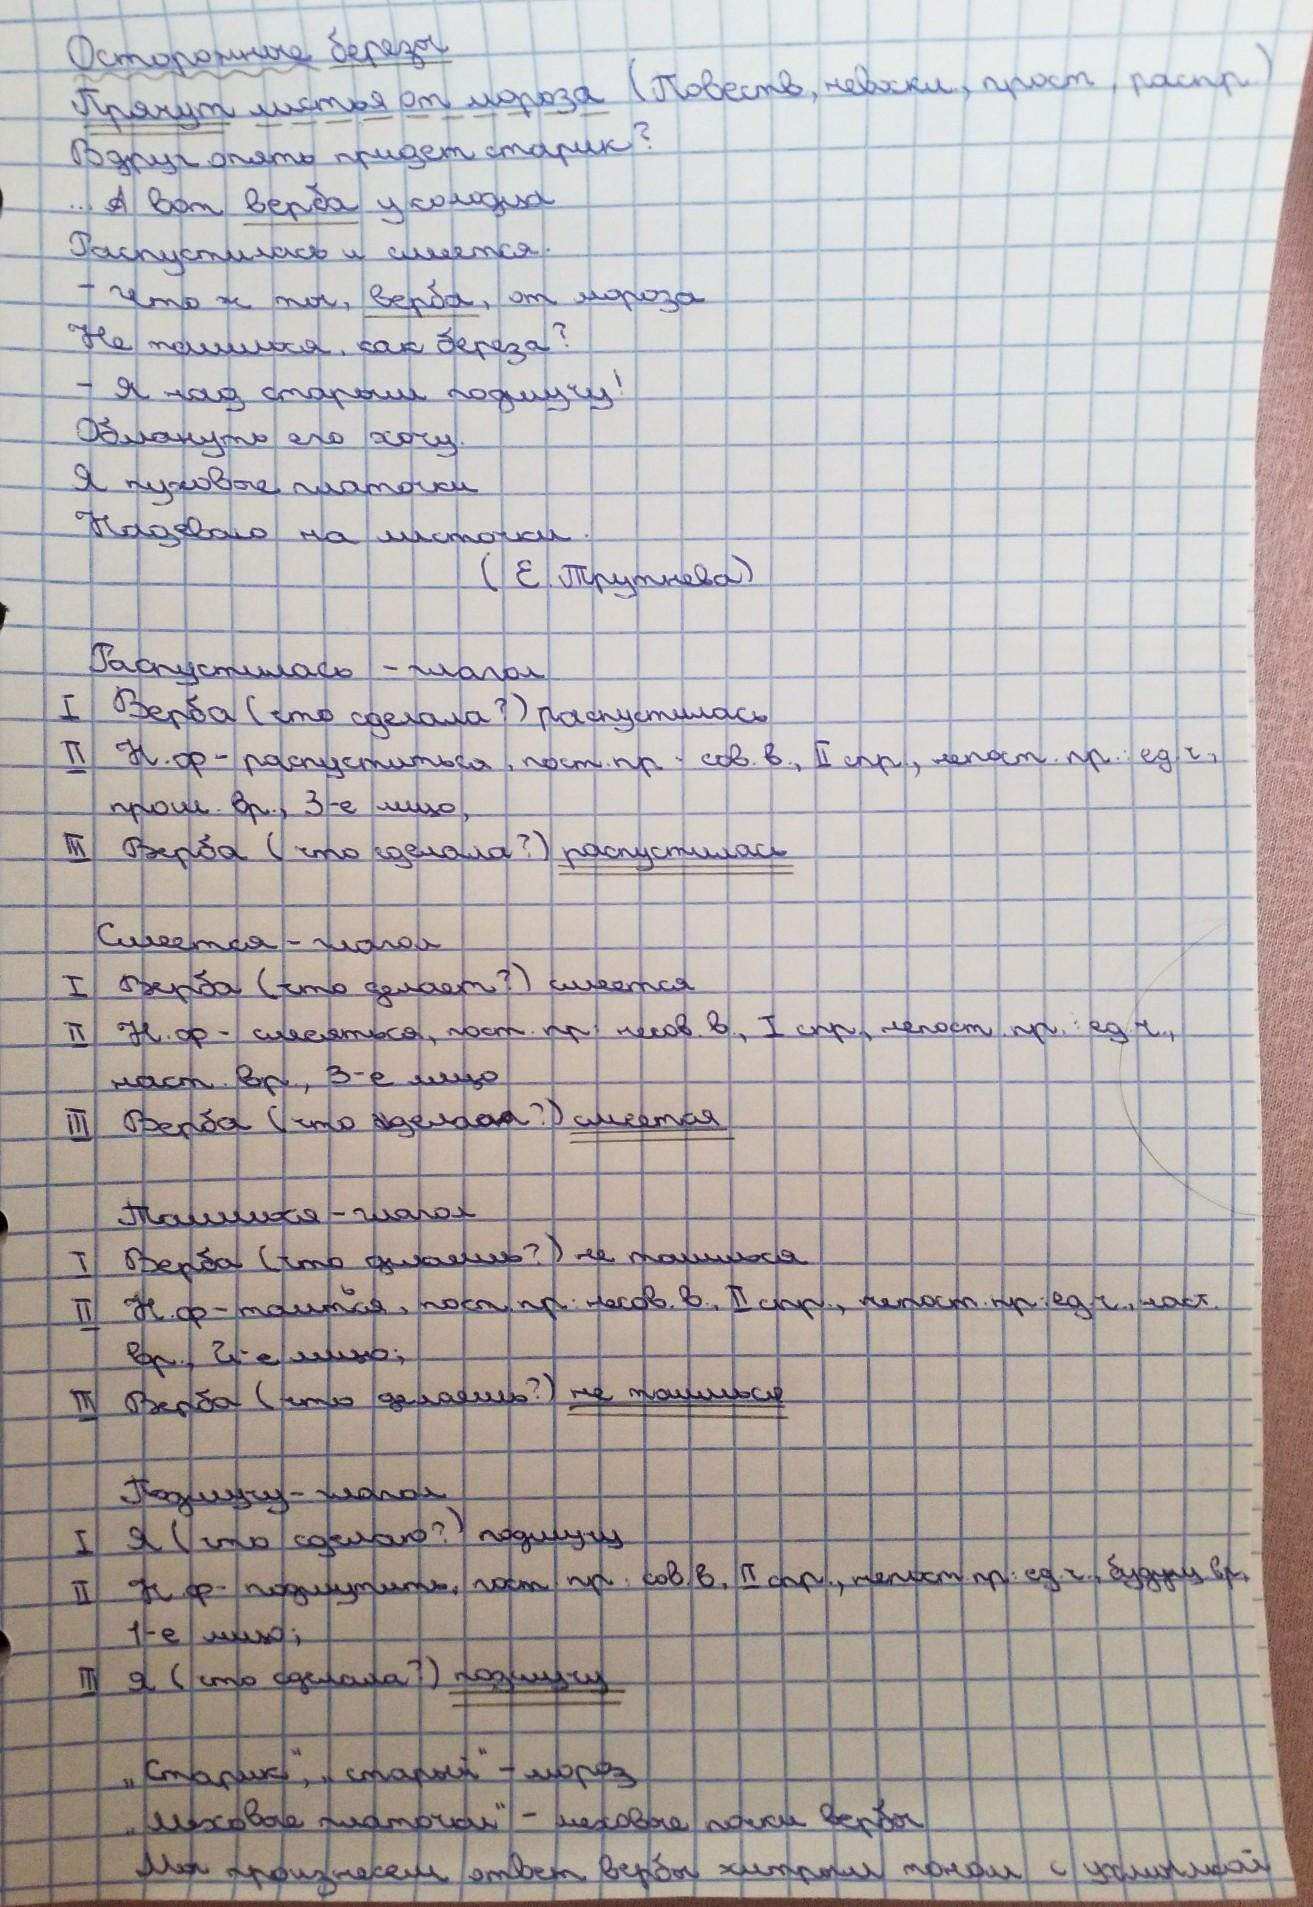 Осторожные березы
Прячут листья от мороза (Повеств, невоскл., прост, распр.)
Вдруг опять придет старик?
... А вот верба у колодца
Распустилась и смеется.
- Что ж ты, верба, от мороза
Не таишься, как береза?
- Я над старым подшучу!
Обмануть его хочу.
Я пуховые платочки
Надеваю на листочки.
(Е. Трутнева)
Распустилась - глагол
I Верба (что сделала?) распустилась
II Н.ф - распуститься, пост. пр - сов. в., II спр, непост. пр.: ед. ч.,
прош. вр., 3-е лицо,
III Верба (что сделала?) распустилась
Смеется - глагол
I Верба (что делает?) смеется
II Н.ф - смеяться, пост. пр: несов. в., I спр., непост. пр.: ед. ч.,
наст. вр., 3-е лицо
III Верба (что?) смеется
Таишься - глагол
I Верба (что делаешь?) не таишься
II Н.ф - таиться, пост. пр: несов. в., II спр., непост. пр: ед. ч., наст.
вр., 2-е лицо;
III Верба (что делаешь?) не таишься
Подшучу - глагол
I Я (что сделаю?) подшучу
II Н.ф - подшутить, пост пр: сов. в, II спр., непост пр: ед. ч., будущ вр,
1-е лицо;
III Я (что сделала?) подшучу
„Старик", „старый" - мороз
„Меховые платочки" - меховые почки вербы
Мы произнесем ответ вербы хитрым тоном с ухмылкой